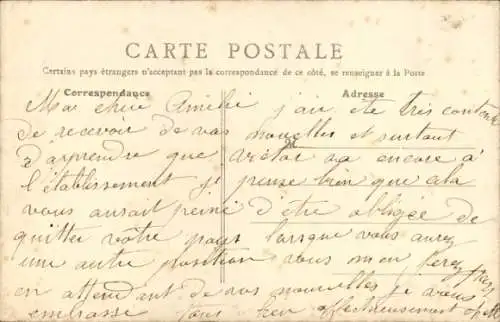 CARTE POSTALE
Certains pays étrangers n'acceptant pas la correspondance de ce côté, se renseigner à la Poste
Correspondance Adresse
Ma chère Amélie j'ai été très contente
de recevoir de vos nouvelles et surtout
d'aprendre que Victor va encore à
l'établissement je pense bien que cela
vous aurait peiné d'être obligée de
quitter vôtre pays lorsque vous aurez
une autre position vous m'en ferez
en attendant de vos nouvelles je vous
embrasse tous bien affectueusement